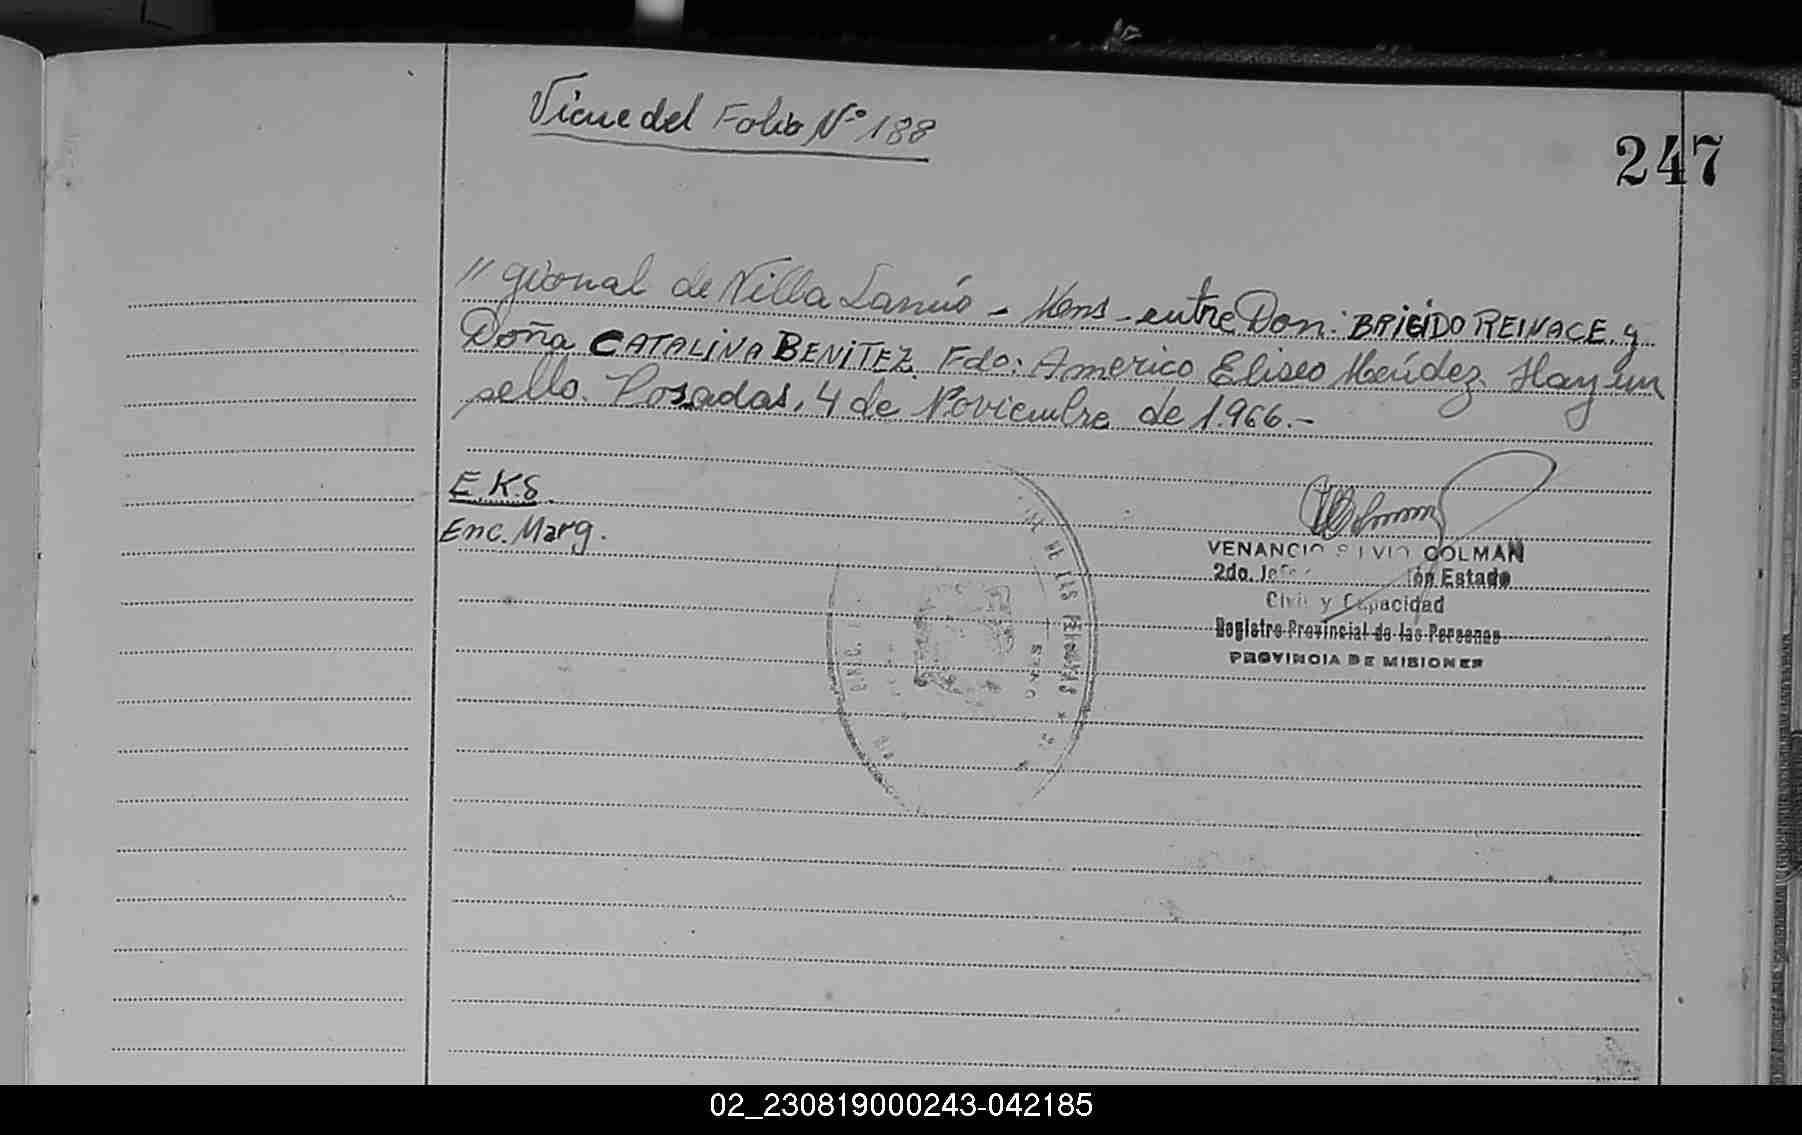 Viene del Folio Nº 188
247
" gional de Villa Lanús - Mns - entre Don: BRIGIDO REINACE. y
Doña CATALINA BENITEZ. Fdo: Americo Eliseo Méndez. Hay un
sello. Posadas, 4 de Noviembre de 1.966.-
E.K.S.
Enc. Marg.
VENANCIO SILVIO COLMAN
2do. Jefe Estado
Civil y Capacidad
Registro Provincial de las Personas
PROVINCIA DE MISIONES
02_230819000243-042185